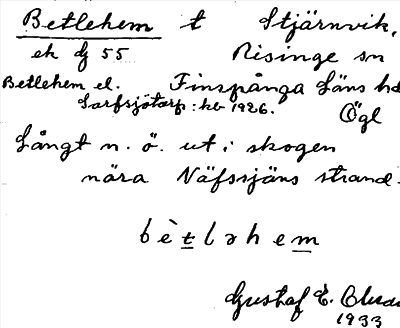 Betlehem t Stjärnvik,
ek dj 55 Risinge sn
Betlehem el. Finspånga läns hd
Sarfsjötorp: kb 1926. Ögl
Långt n. ö. ut i skogen
nära Näfssjöns strand.
bètləhem
Gustaf E.
1933